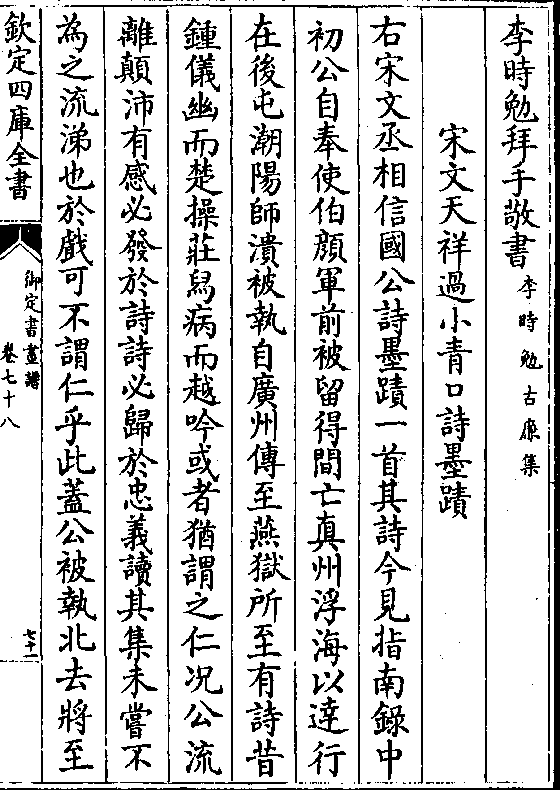 李時勉拜手敬書李時勉古廉集
宋文天祥過小青口詩墨蹟
右宋文丞相信國公詩墨蹟一首其詩今見指南錄中
初公自奉使伯顔軍前被留得間亡真州浮海以達行
在後屯潮陽師潰被執自廣州傳至燕獄所至有詩昔
鍾儀幽而楚操莊舄病而越吟或者猶謂之仁况公流
離顛沛有感必發於詩詩必歸於忠義讀其集未嘗不
為之流涕也於戲可不謂仁乎此蓋公被執北去將至
欽定四庫全書
御定書畫譜
卷七十八
七十一